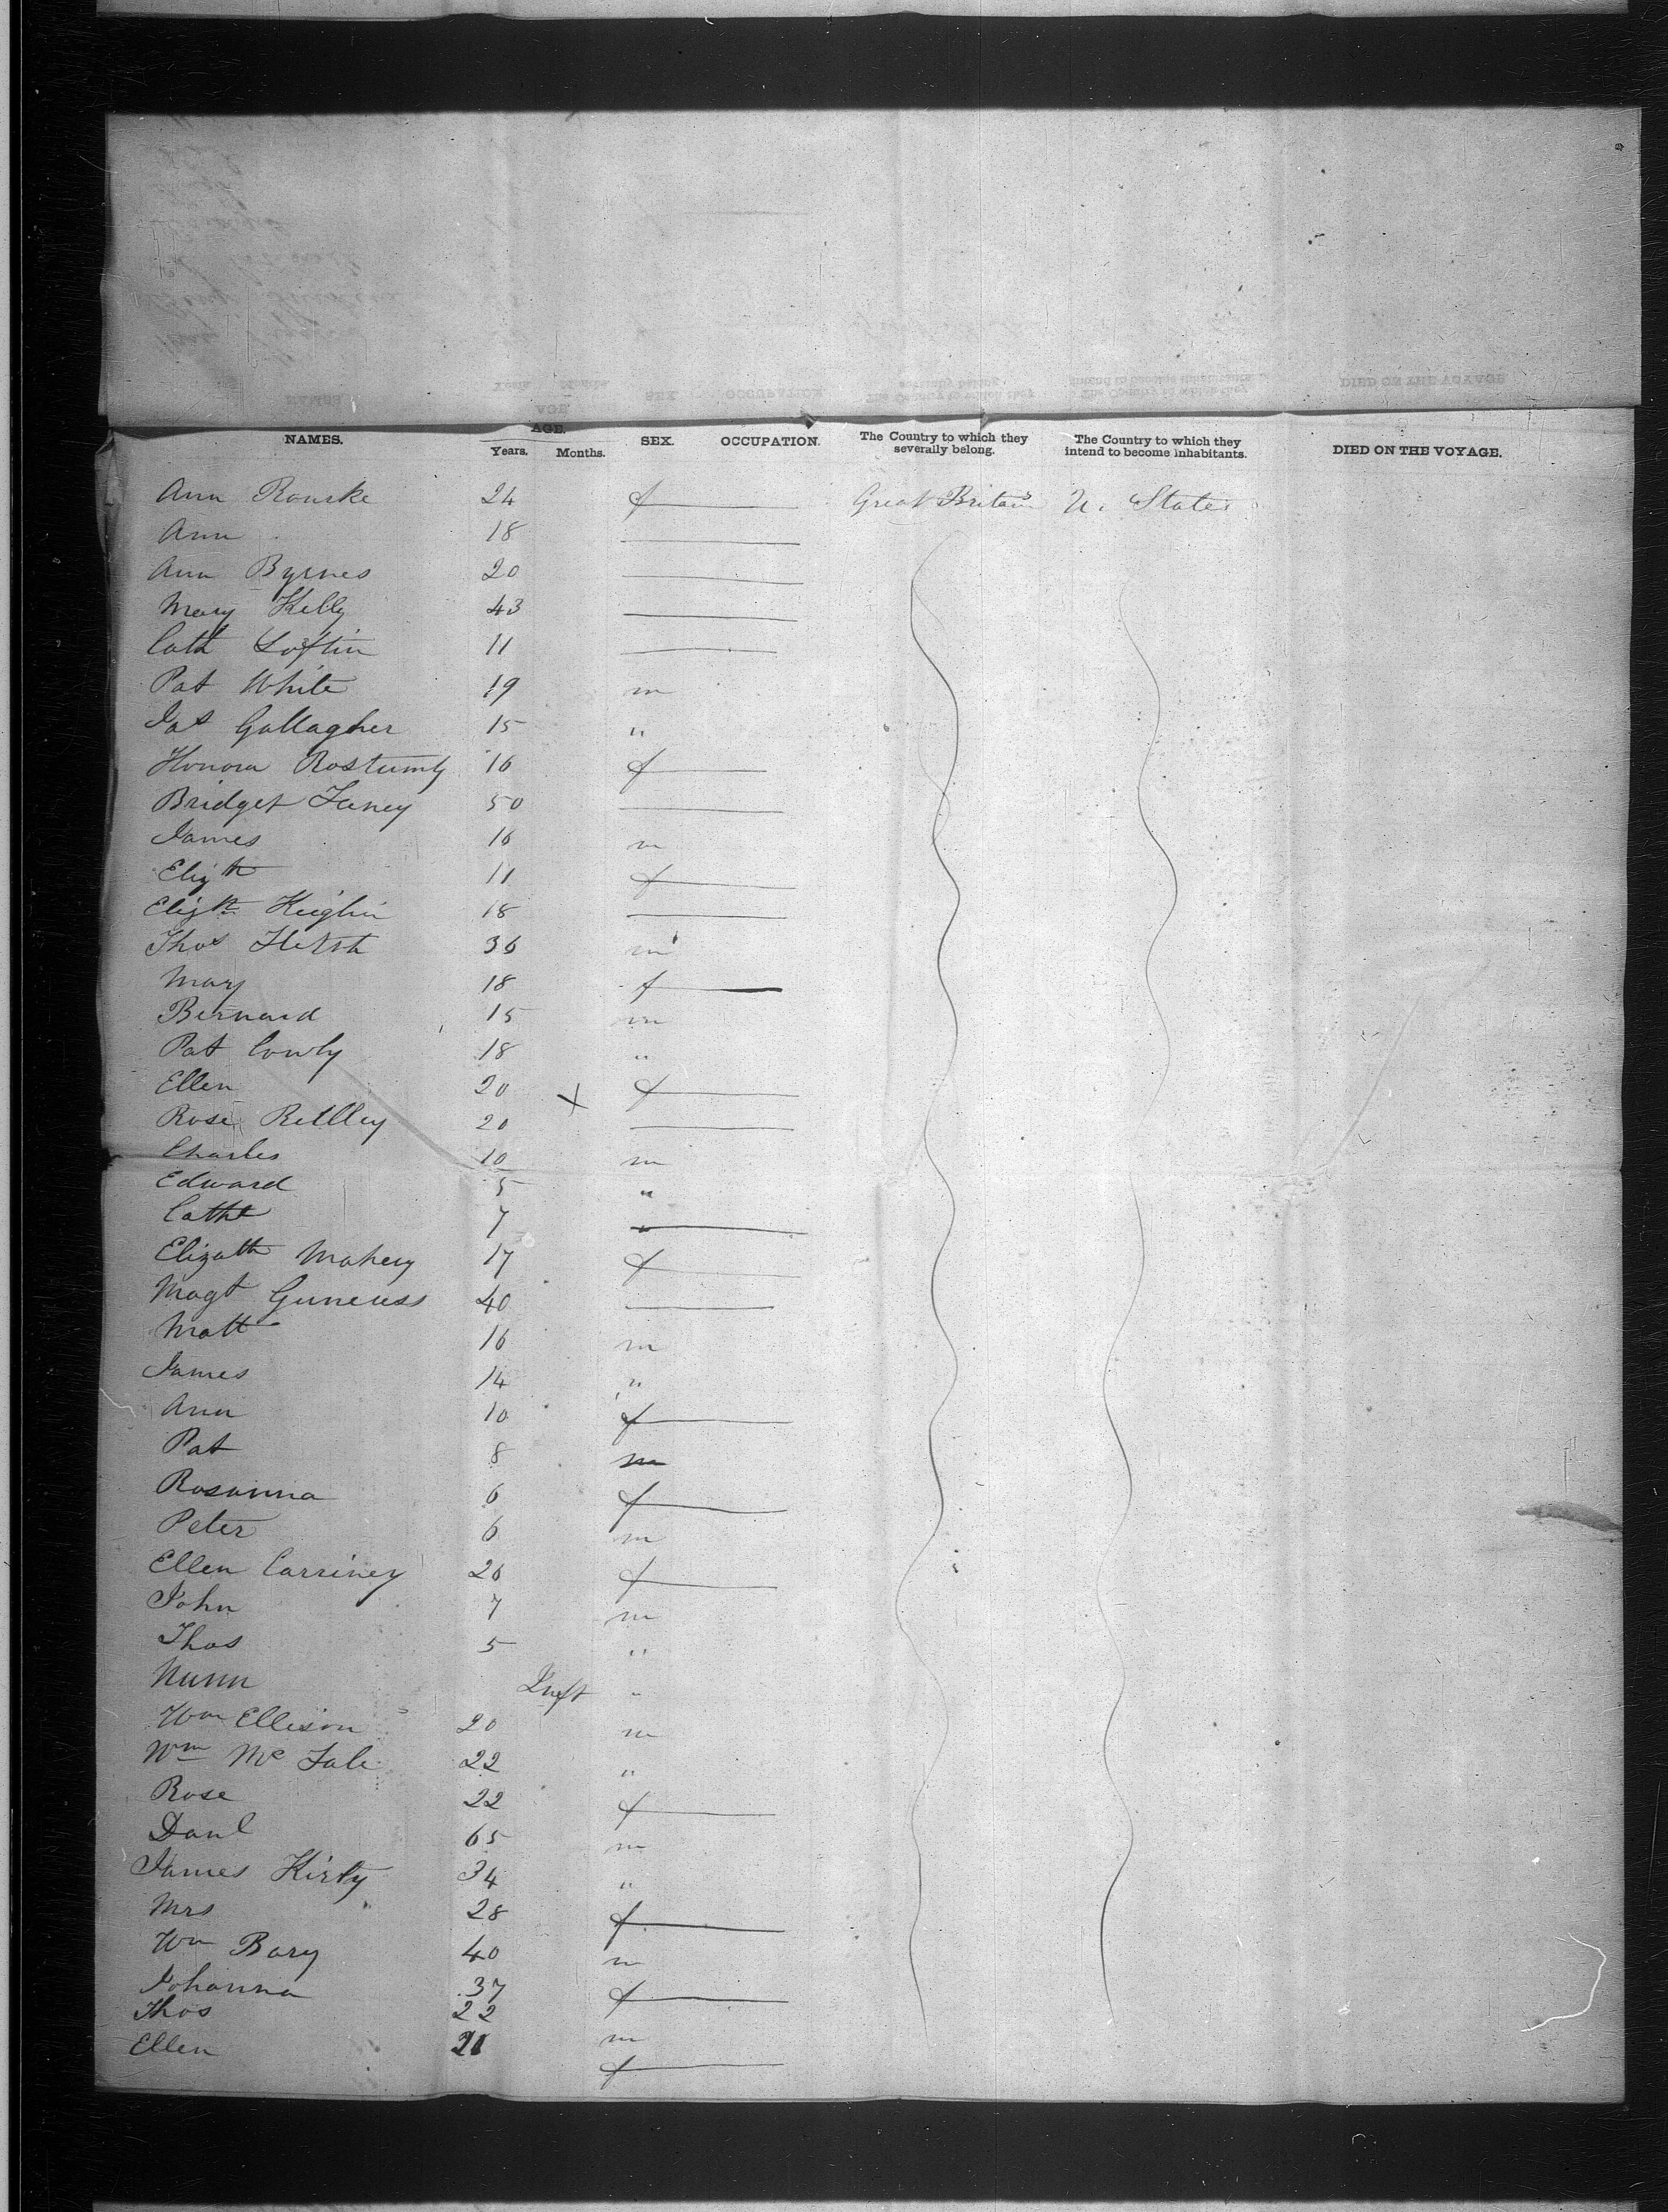 NAMES. AGE. Years. Months. SEX. OCCUPATION. The Country to which they severally belong. The Country to which they intend to become inhabitants. DIED ON THE VOYAGE.
Ann Rourke 24 f Great Britain U. States
Ann 18
Ann Byrnes 20
Mary Kelly 43
Cath Loftin 11
Pat White 19 m
Jas Gallagher 15 "
Honora 16 f
Bridget 50
James 16 m
Elizth 11 f
Elizth 18
Thos 36 m
Mary 18 f
Bernard 15 m
Pat Cowly 18 "
Ellen 20 X f
Rose Rellley 20
Charles 10 m
Edward 5 "
Catht 7 "
Elizath Mahery 17 f
Magt Guneuss 40
Matt 16 m
James 14 "
Ann 10 f
Pat 8 m
Rosanna 6 f
Peter 6 m
Ellen Carriney 26 f
John 7 m
Thos 5 "
Inft "
Wm Ellison 20 m
Wm Mc 22 "
Rose 22 f
Danl 65 m
James Kirty 34 "
Mrs 28 f
Wm Bary 40 m
Johanna 37 f
Thos 22 m
Ellen f